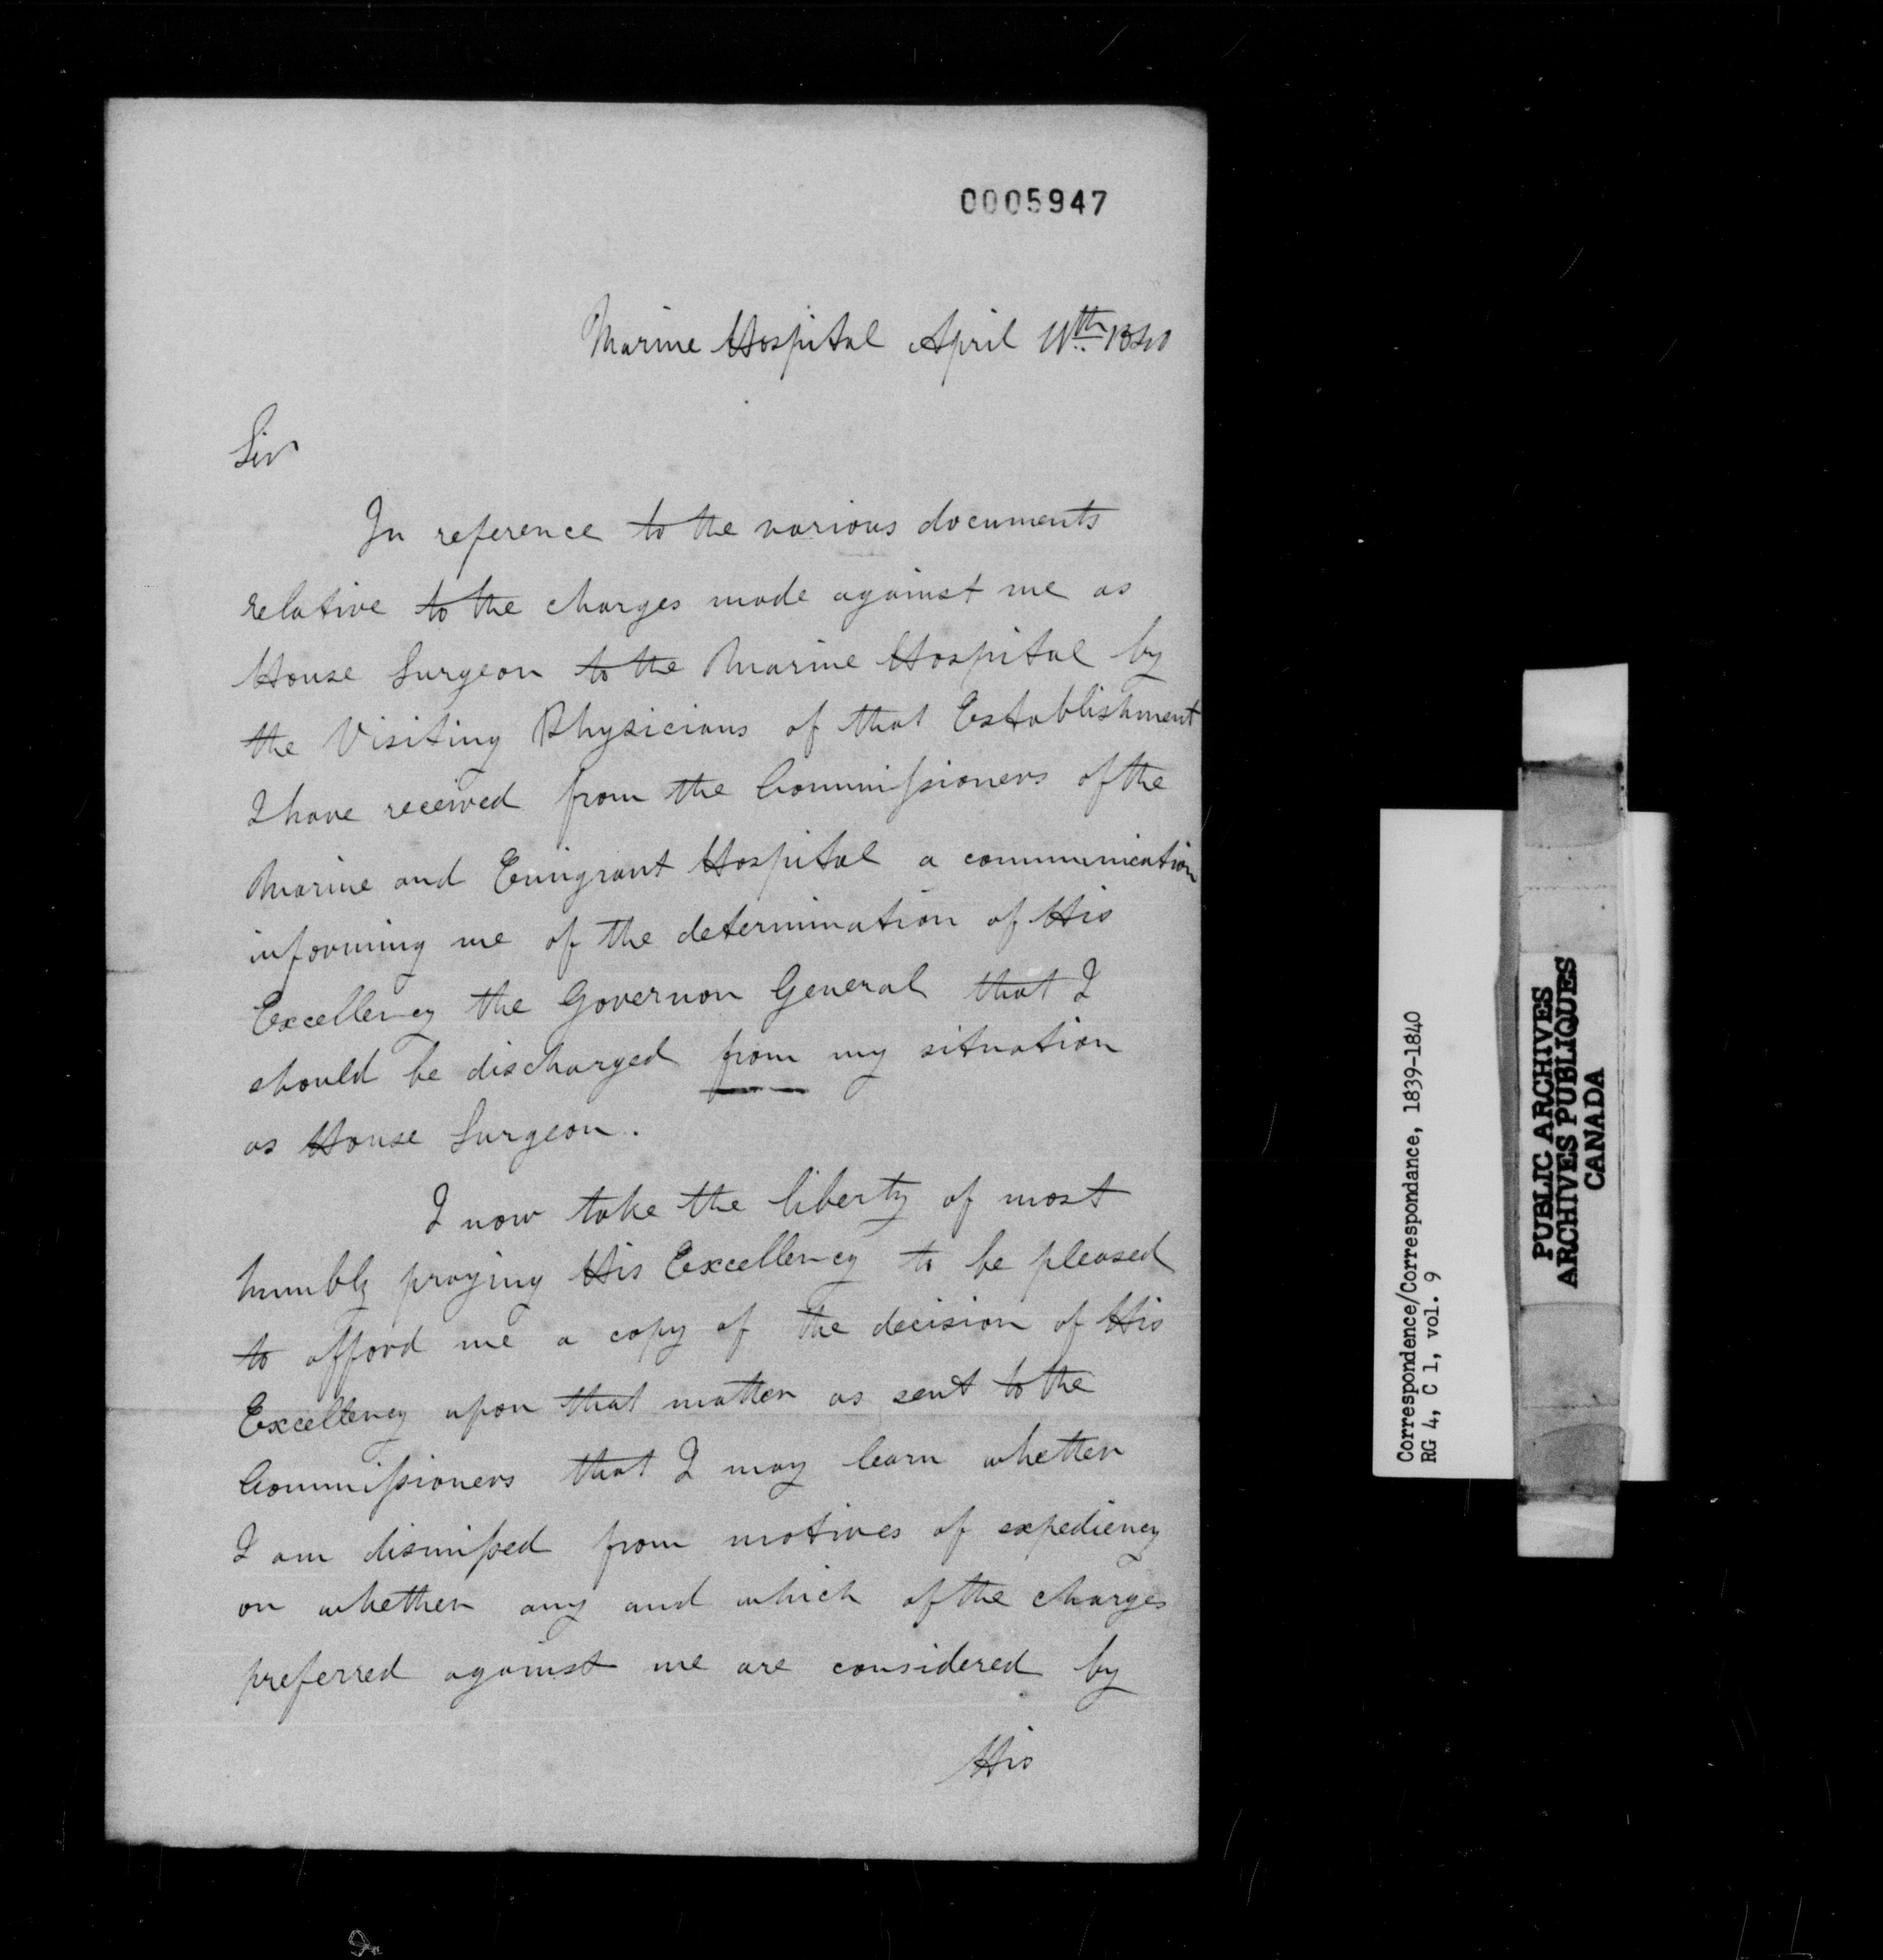 0005947
Marine Hospital April 11th 1840
Sir
In reference to the various documents
relative to the charges made against me as
House Surgeon to the Marine Hospital by
the Visiting Physicians of that Establishment
I have received from the Commissioners of the
Marine and Emigrant Hospital a communication
informing me of the determination of His
Excellency the Governor General that I
should be discharged from my situation
as House Surgeon.
I now take the liberty of most
humbly praying His Excellency to be pleased
to afford me a copy of the decision of His
Excellency upon that matter as sent to the
Commissioners that I may learn whether
I am dismissed from motives of expediency
or whether any and which of the charges
preferred against me are considered by
His
Correspondence/Correspondance, 1839-1840
RG 4, C 1, vol. 9
PUBLIC ARCHIVES
ARCHIVES PUBLIQUES
CANADA